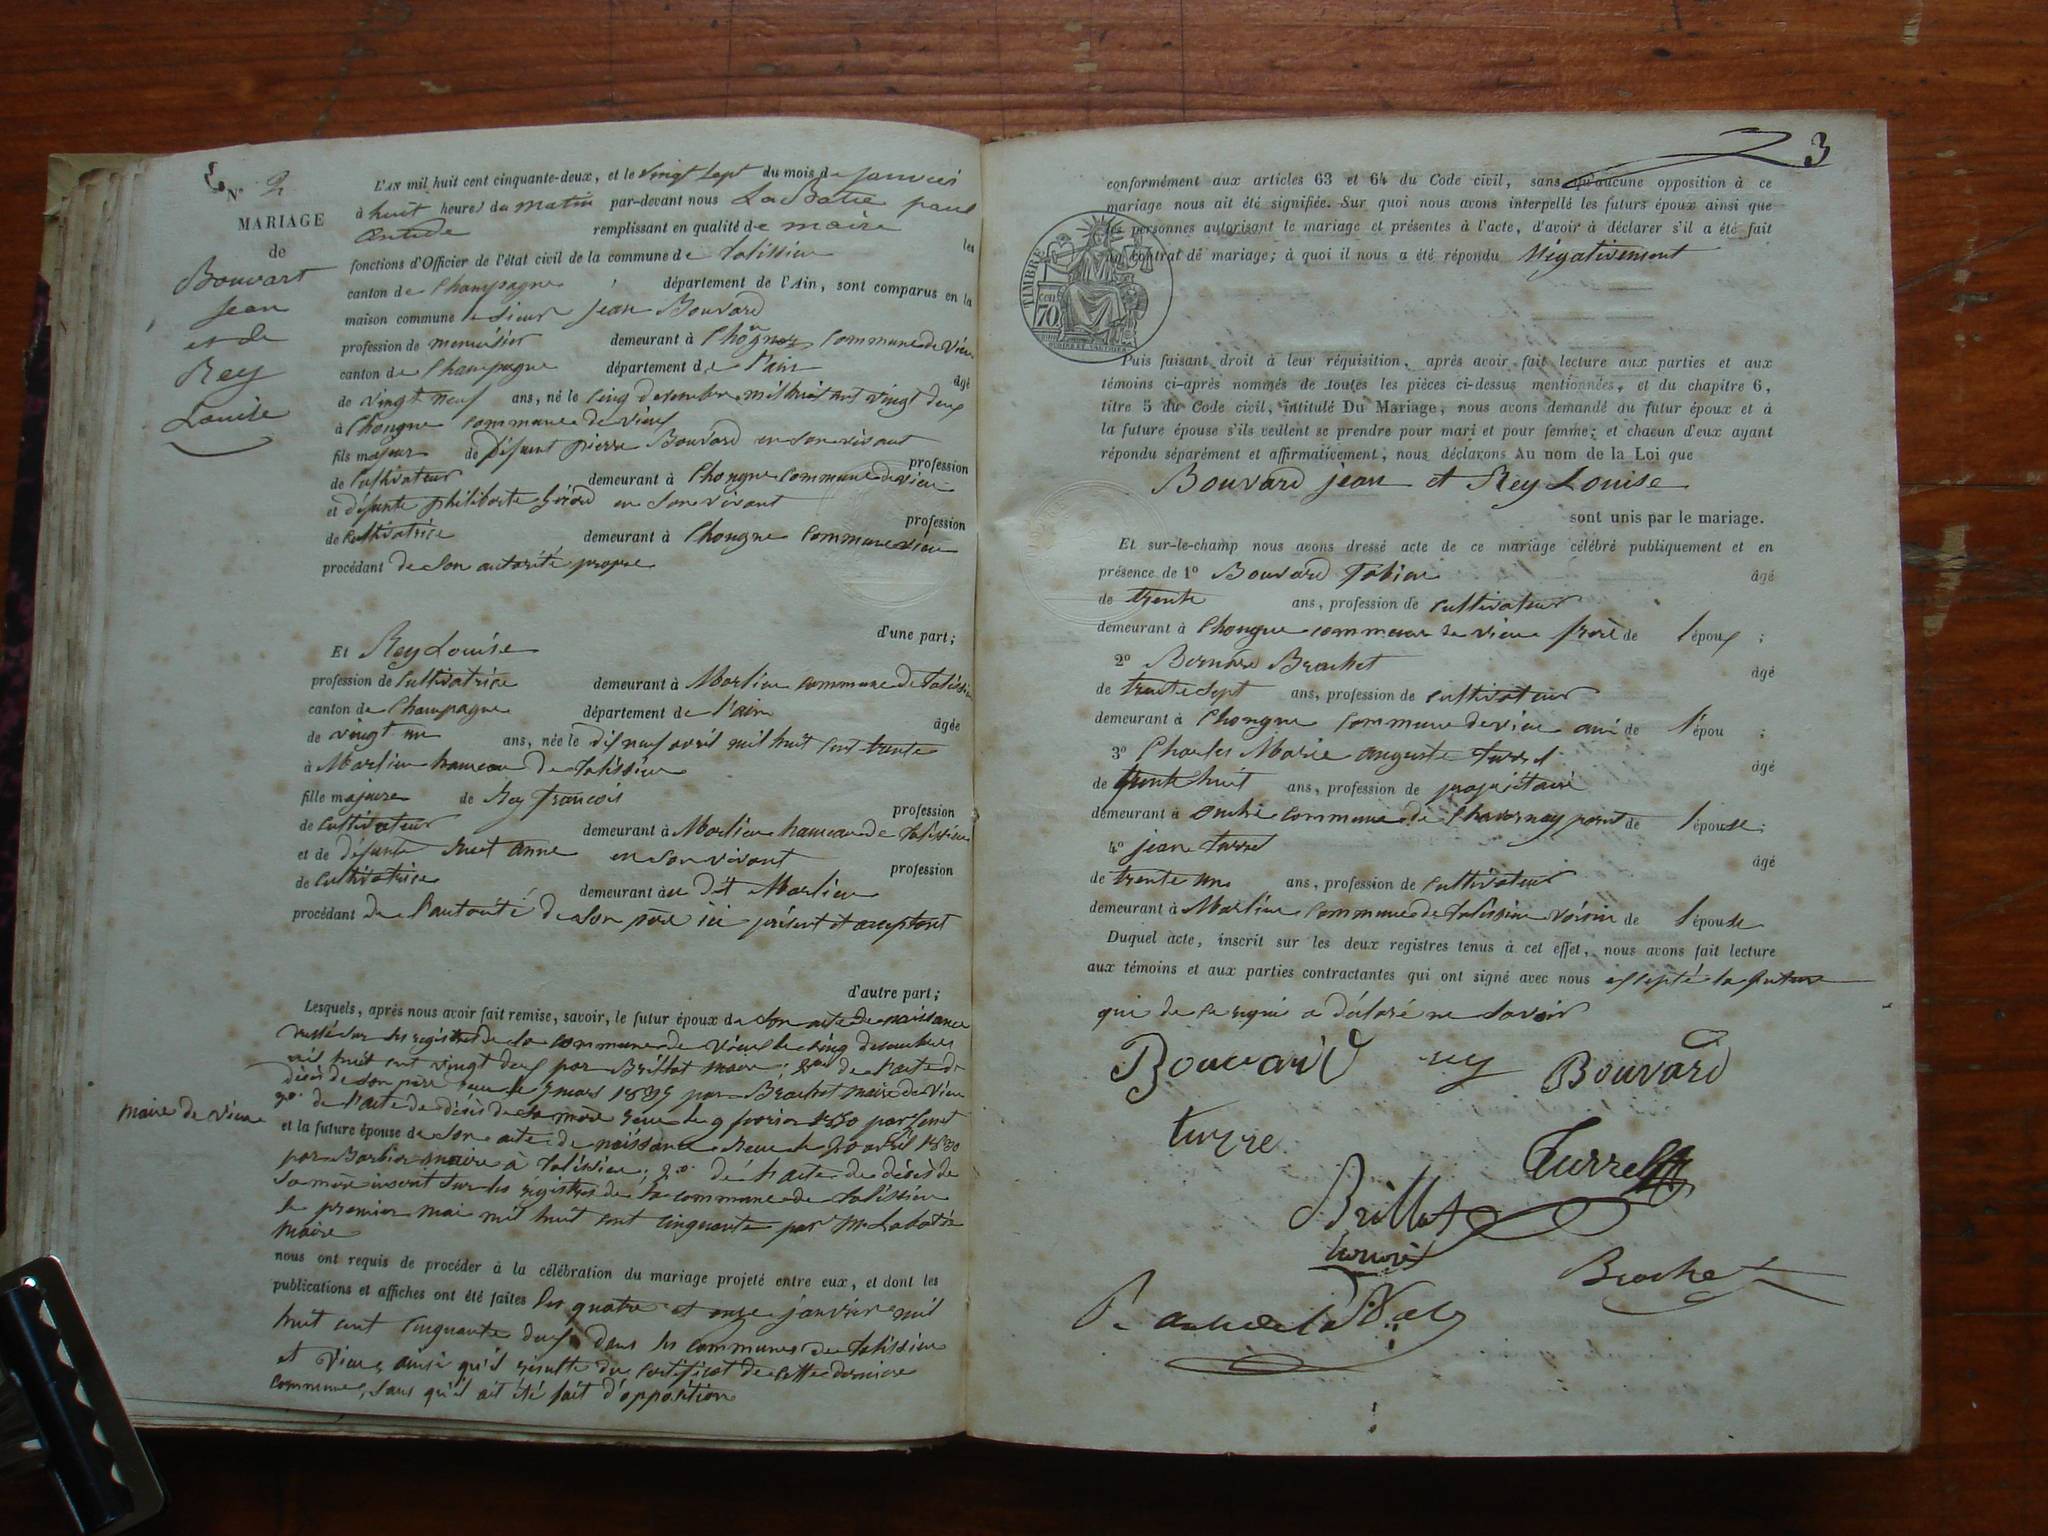 N° 2
MARIAGE
de
Bouvart
Jean
et de
Rey
Louise
L'AN mil huit cent cinquante-deux, et le vingt sept du mois de janvier
à huit heures du matin par-devant nous LaBatie paul
remplissant en qualité de maire les
fonctions d'Officier de l'état civil de la commune de talissieu
canton de Champagne, département de l'Ain, sont comparus en la
maison commune le sieur jean Bouvard
profession de menuisier demeurant à Chongne Commune de vieu
canton de Champagne département de l'ain âgé
de vingt neuf ans, né le cinq decembre mil huit cent vingt deux
à Chongne commune de vieu
fils majeur de défunt pierre Bouvard en son vivant profession
de Cultivateur demeurant à Chongne commune de vieu
et défunte philiberte en son vivant profession
de cultivatrice demeurant à Chongne commune vieu
procédant de son autorité propre
d'une part;
Et Rey Louise
profession de Cultivatrice demeurant à Marlieu commune de talissieu
canton de Champagne département de l'ain âgée
de vingt un ans, née le dix neuf avril mil huit cent trente
à Marlieu hameau de talissieu
fille majeure de Rey françois profession
de cultivateur demeurant à Marlieu hameau de talissieu
et de défunte anne en son vivant profession
de Cultivatrice demeurant à u dit Marlieu
procédant de l'autorité de son père ici présent et acceptant
d'autre part;
Lesquels, après nous avoir fait remise, savoir, le futur époux de son acte de naissance
sur les registres de la commune de vieu le cinq decembre
mil huit cent vingt deux par Brillat maire; de l'acte de
décès de son père mars par Brachet maire de vieu
de l'acte de décès de sa mère le 9 fevrier 1850 par
maire de vieu
et la future épouse de son acte de naissance le 20 avril 1830
par Barbier maire à talissieu; 2° de l'acte de décès de
sa mère inscrit sur les registres de la commune de talissieu
le premier mai mil huit cent cinquante par Mr Labatie
maire
nous ont requis de procéder à la célébration du mariage projeté entre eux, et dont les
publications et affiches ont été faites les quatre et onze janvier mil
huit cent cinquante deux dans les communes de talissieu
et vieu, ainsi qu'il résulte du certificat de cette dernière
commune, sans qu'il ait été fait d'opposition
3
conformément aux articles 63 et 64 du Code civil, sans qu'aucune opposition à ce
mariage nous ait été signifiée. Sur quoi nous avons interpellé les futurs époux ainsi que
les personnes autorisant le mariage et présentes à l'acte, d'avoir à déclarer s'il a été fait
un contrat de mariage; à quoi il nous a été répondu Négativement
TIMBRE
70
Puis faisant droit à leur réquisition, après avoir fait lecture aux parties et aux
témoins ci-après nommés de toutes les pièces ci-dessus mentionnées, et du chapitre 6,
titre 5 du Code civil, intitulé Du Mariage, nous avons demandé au futur époux et à
la future épouse s'ils veulent se prendre pour mari et pour femme; et chacun d'eux ayant
répondu séparément et affirmativement, nous déclarons Au nom de la Loi que
Bouvard jean et Rey Louise
sont unis par le mariage.
Et sur-le-champ nous avons dressé acte de ce mariage célébré publiquement et en
présence de 1° Bouvard âgé
de trente ans, profession de cultivateur
demeurant à Chongne commune de vieu frère de l'époux;
2° Bernard Brachet âgé
de trente sept ans, profession de cultivateur
demeurant à Chongne commune de vieu ami de l'épou;
3° Charles Marie auguste turrel âgé
de trente huit ans, profession de propriétaire
demeurant à commune de Chavornay parent de l'épouse;
4° jean turrel âgé
de trente un ans, profession de cultivateur
demeurant à Marlieu commune de talissieu voisin de l'épouse
Duquel acte, inscrit sur les deux registres tenus à cet effet, nous avons fait lecture
aux témoins et aux parties contractantes qui ont signé avec nous excepté la future
qui de ce requise a déclaré ne savoir
Bouvard rey Bouvard
Turrel
Brillat
Brachet